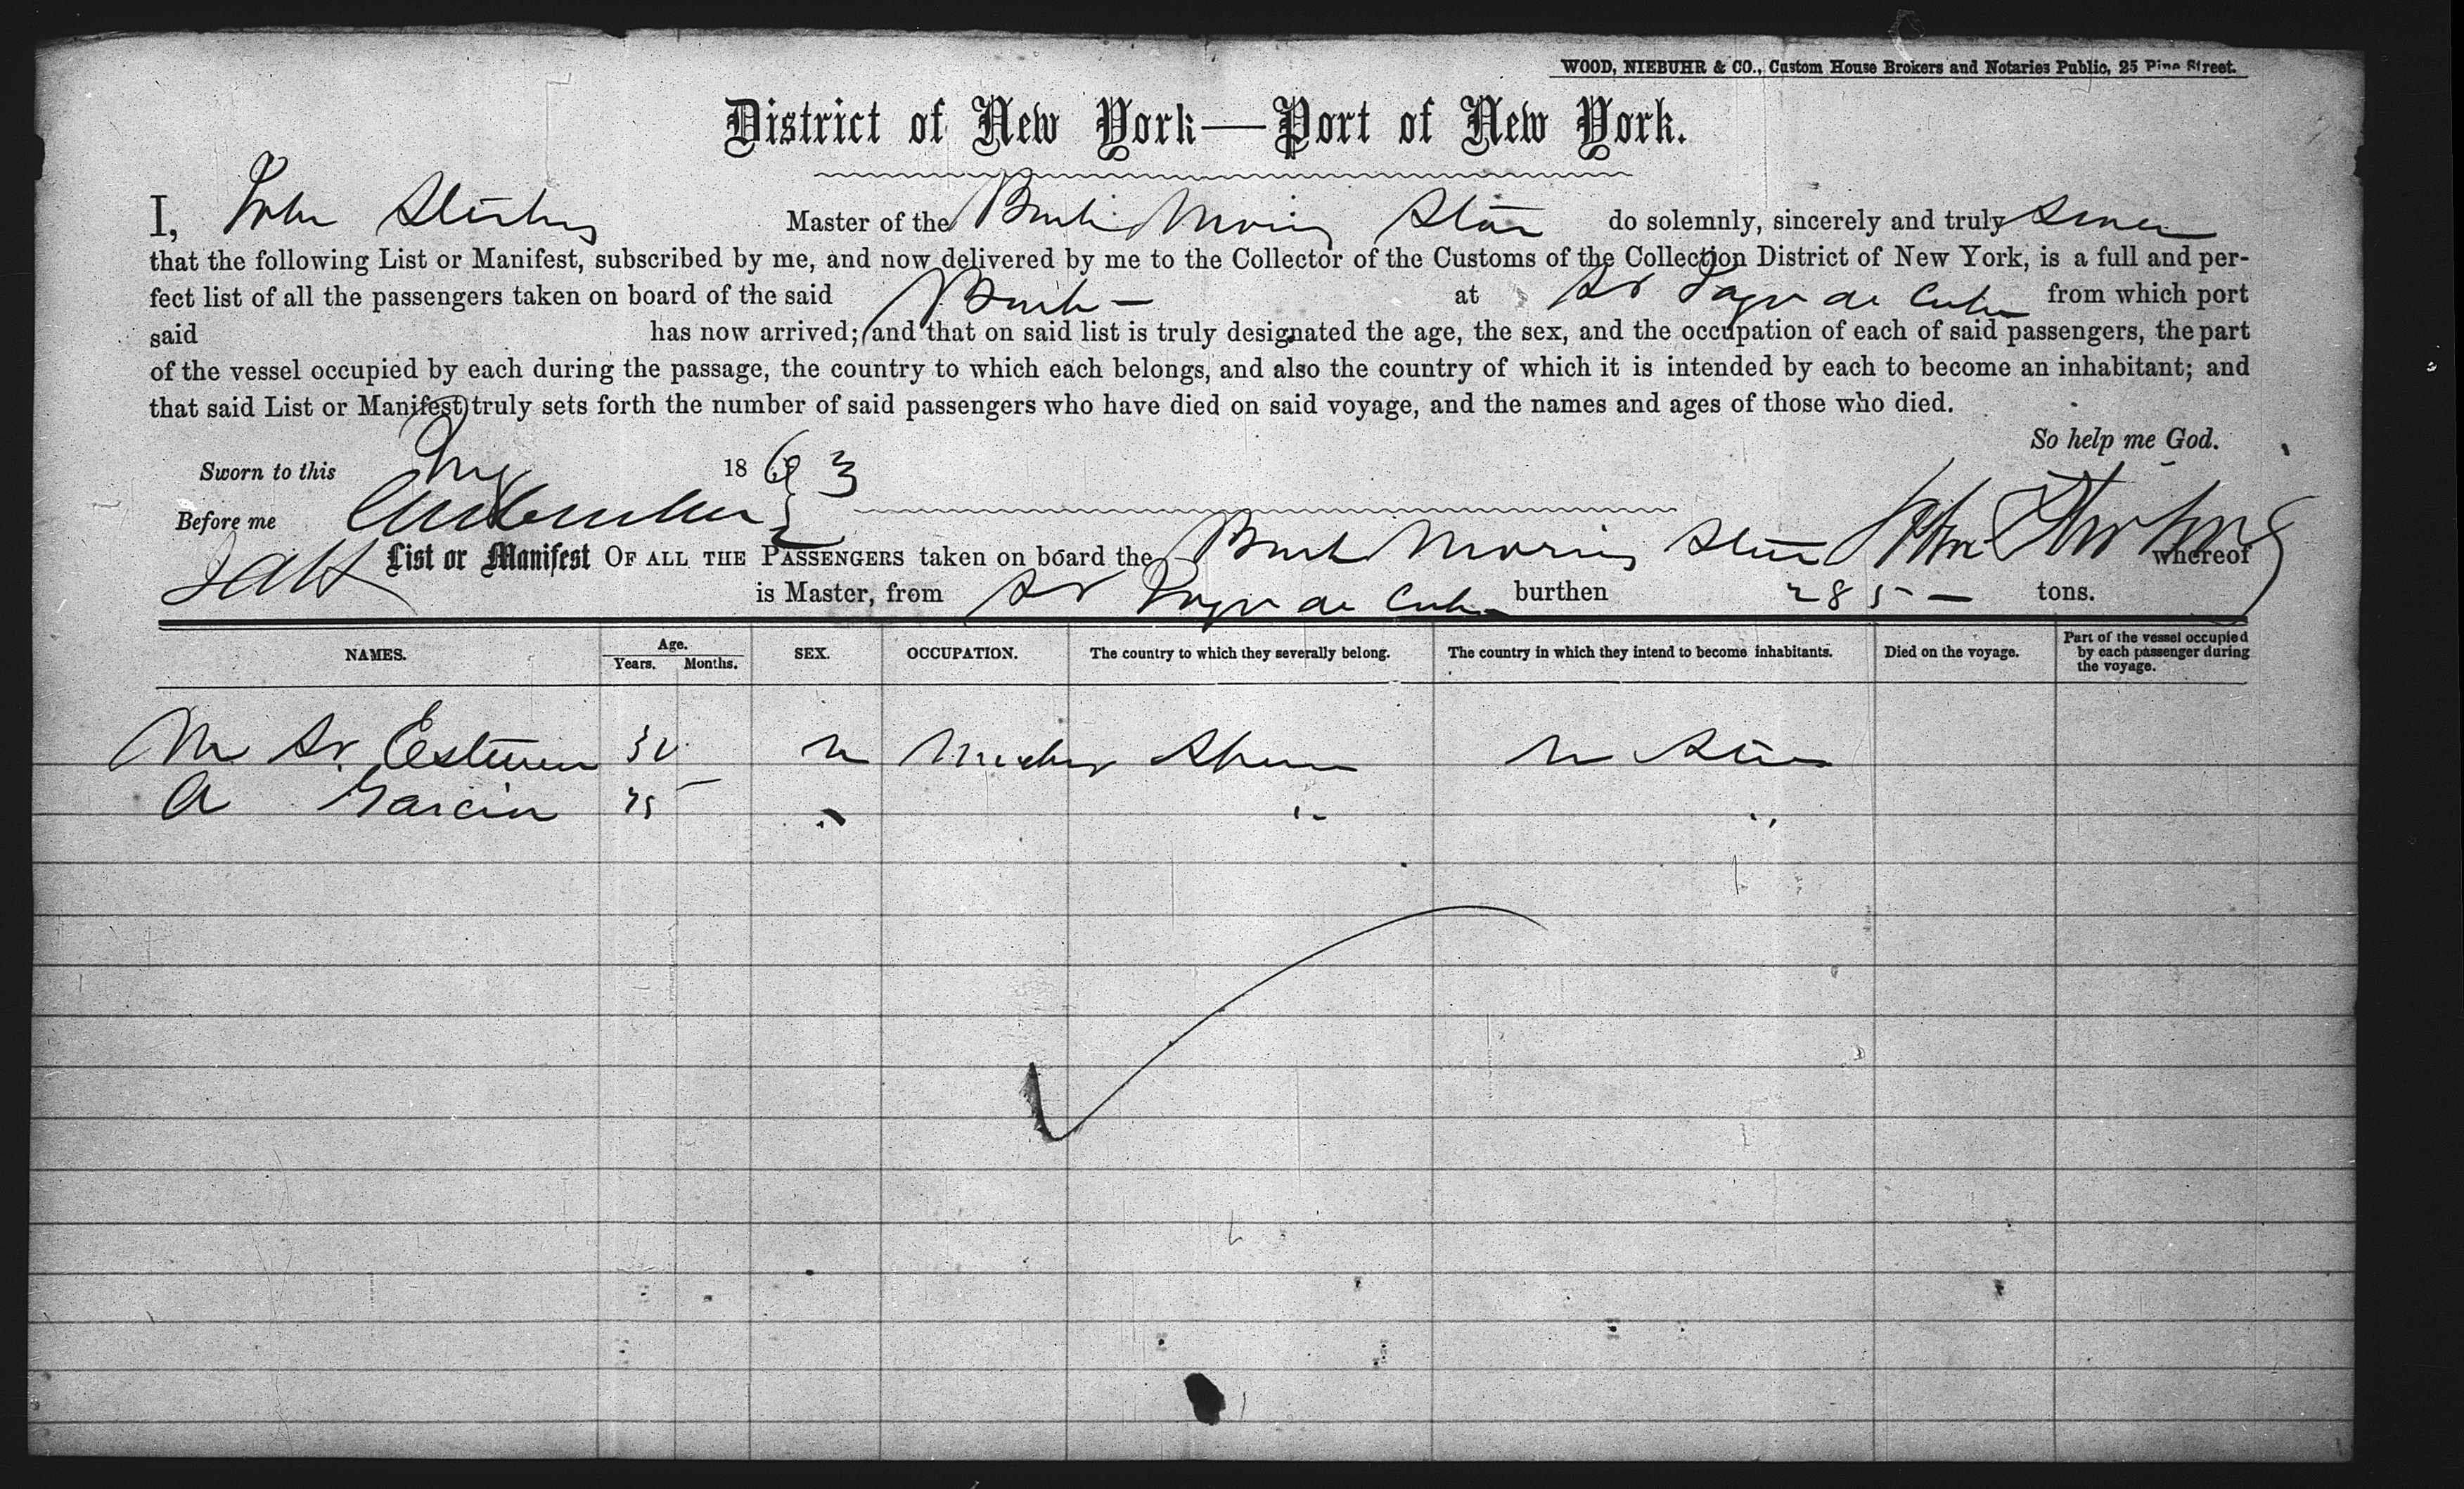 WOOD, NIEBUHR & CO., Custom House Brokers and Notaries Public, 25 Pine Street.
District of New York—Port of New York.
I, John Master of the Morning Star do solemnly, sincerely and truly swear
that the following List or Manifest, subscribed by me, and now delivered by me to the Collector of the Customs of the Collection District of New York, is a full and per-
fect list of all the passengers taken on board of the said at St Jago de Cuba from which port
said has now arrived; and that on said list is truly designated the age, the sex, and the occupation of each of said passengers, the part
of the vessel occupied by each during the passage, the country to which each belongs, and also the country of which it is intended by each to become an inhabitant; and
that said List or Manifest truly sets forth the number of said passengers who have died on said voyage, and the names and ages of those who died.
So help me God.
Sworn to this 1863
Before me
List or Manifest OF ALL THE PASSENGERS taken on board the Morning Star John whereof
is Master, from St Jago de Cuba burthen 285 — tons.
NAMES. Age. Years. Months. SEX. OCCUPATION. The country to which they severally belong. The country in which they intend to become inhabitants. Died on the voyage. Part of the vessel occupied by each passenger during the voyage.
M
A Garcia " "